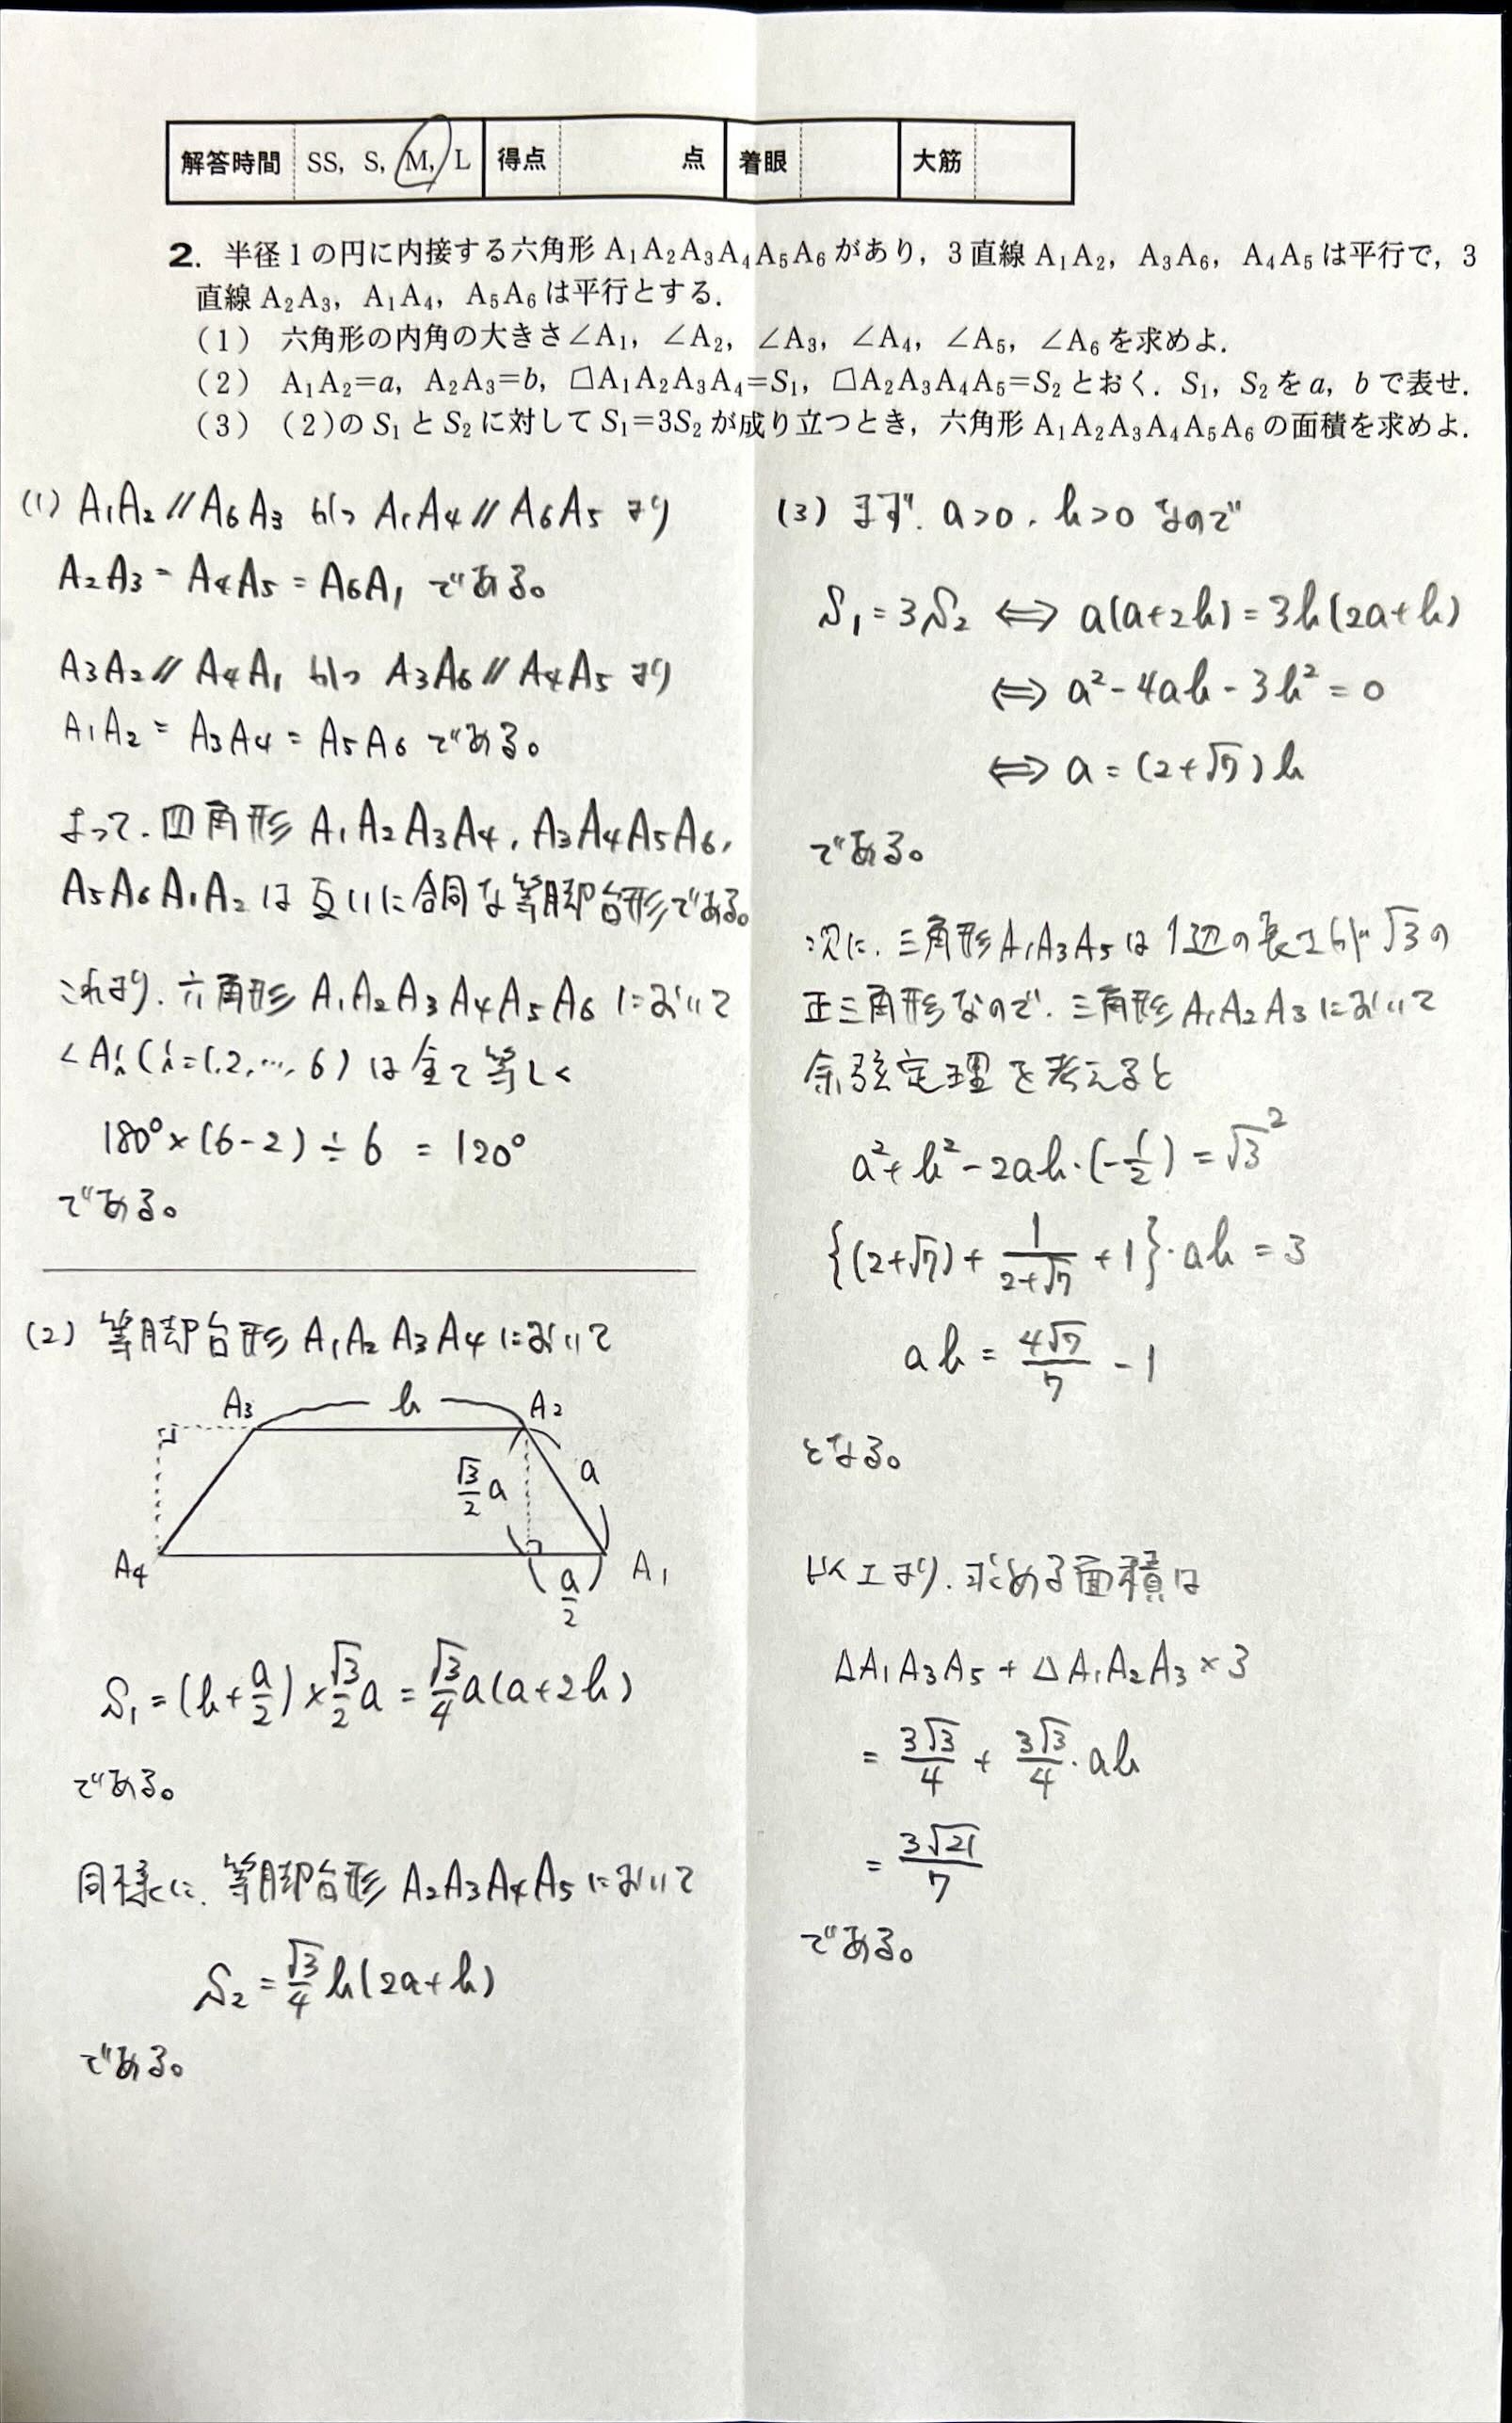 解答時間 SS, S, M, L 得点 点 着眼 大筋
2. 半径1の円に内接する六角形A₁A₂A₃A₄A₅A₆があり，3直線A₁A₂，A₃A₆，A₄A₅は平行で，3
直線A₂A₃，A₁A₄，A₅A₆は平行とする．
(1) 六角形の内角の大きさ∠A₁，∠A₂，∠A₃，∠A₄，∠A₅，∠A₆を求めよ．
(2) A₁A₂=a，A₂A₃=b，□A₁A₂A₃A₄=S₁，□A₂A₃A₄A₅=S₂とおく．S₁，S₂をa，bで表せ．
(3) (2)のS₁とS₂に対してS₁=3S₂が成り立つとき，六角形A₁A₂A₃A₄A₅A₆の面積を求めよ．
(1) A₁A₂ // A₆A₃ かつ A₁A₄ // A₆A₅ より
A₂A₃ = A₄A₅ = A₆A₁ である。
A₃A₂ // A₄A₁ かつ A₃A₆ // A₄A₅ より
A₁A₂ = A₃A₄ = A₅A₆ である。
よって、四角形 A₁A₂A₃A₄, A₃A₄A₅A₆,
A₅A₆A₁A₂ は互いに合同な等脚台形である。
これより、六角形 A₁A₂A₃A₄A₅A₆ において
∠Aᵢ (i=1,2,…,6) は全て等しく
180°×(6-2)÷6 = 120°
である。
(2) 等脚台形 A₁A₂A₃A₄ において
A₃ b A₂
√3/2 a a
A₄ a/2 A₁
S₁ = (b+a/2)×√3/2 a = √3/4 a(a+2b)
である。
同様に、等脚台形 A₂A₃A₄A₅ において
S₂ = √3/4 b(2a+b)
である。
(3) まず、a>0, b>0 なので
S₁=3S₂ ⇔ a(a+2b)=3b(2a+b)
⇔ a²-4ab-3b²=0
⇔ a=(2+√7)b
である。
次に、三角形A₁A₃A₅は1辺の長さが√3の
正三角形なので、三角形A₁A₂A₃において
余弦定理を考えると
a²+b²-2ab・(-1/2)=√3²
{(2+√7)+1/(2+√7)+1}・ab=3
ab=4√7/7-1
となる。
以上より、求める面積は
△A₁A₃A₅+△A₁A₂A₃×3
=3√3/4+3√3/4・ab
=3√21/7
である。